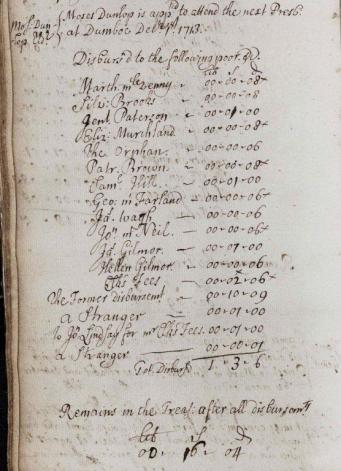 Moses Dunlop is app.d to attend the next Presb.
at Dec.r 1713.
Disburs'd to the following poor
lib s d
Marth. mc kenny - 00-00-08
Silv: Brooks - 00-00-08
Gent. Paterson - 00-01-00
Eliz: Murchland - 00-00-08
The Orphan - 00-00-06
Patr. Brown - 00-00-08
Sam. Hill - 00-01-00
Geo: mcFarland - 00-00-06
Ja. waugh - 00-00-06
Jon mcNeil - 00-00-06
Ja. Gilmor - 00-07-00
Hellen Gilmor - 00-00-06
Clks Fees - 00-02-06
The Former disbursemt - 00-10-09
a Stranger = 00-01-00
to Jo. Lindsay for mr Clks Fees. 00-01-00
a Stranger 00-00-01
Tot. Disburs'd 1-3-6
Remains in the Treas: after all disbursemts
lib s d
00. 16. 04